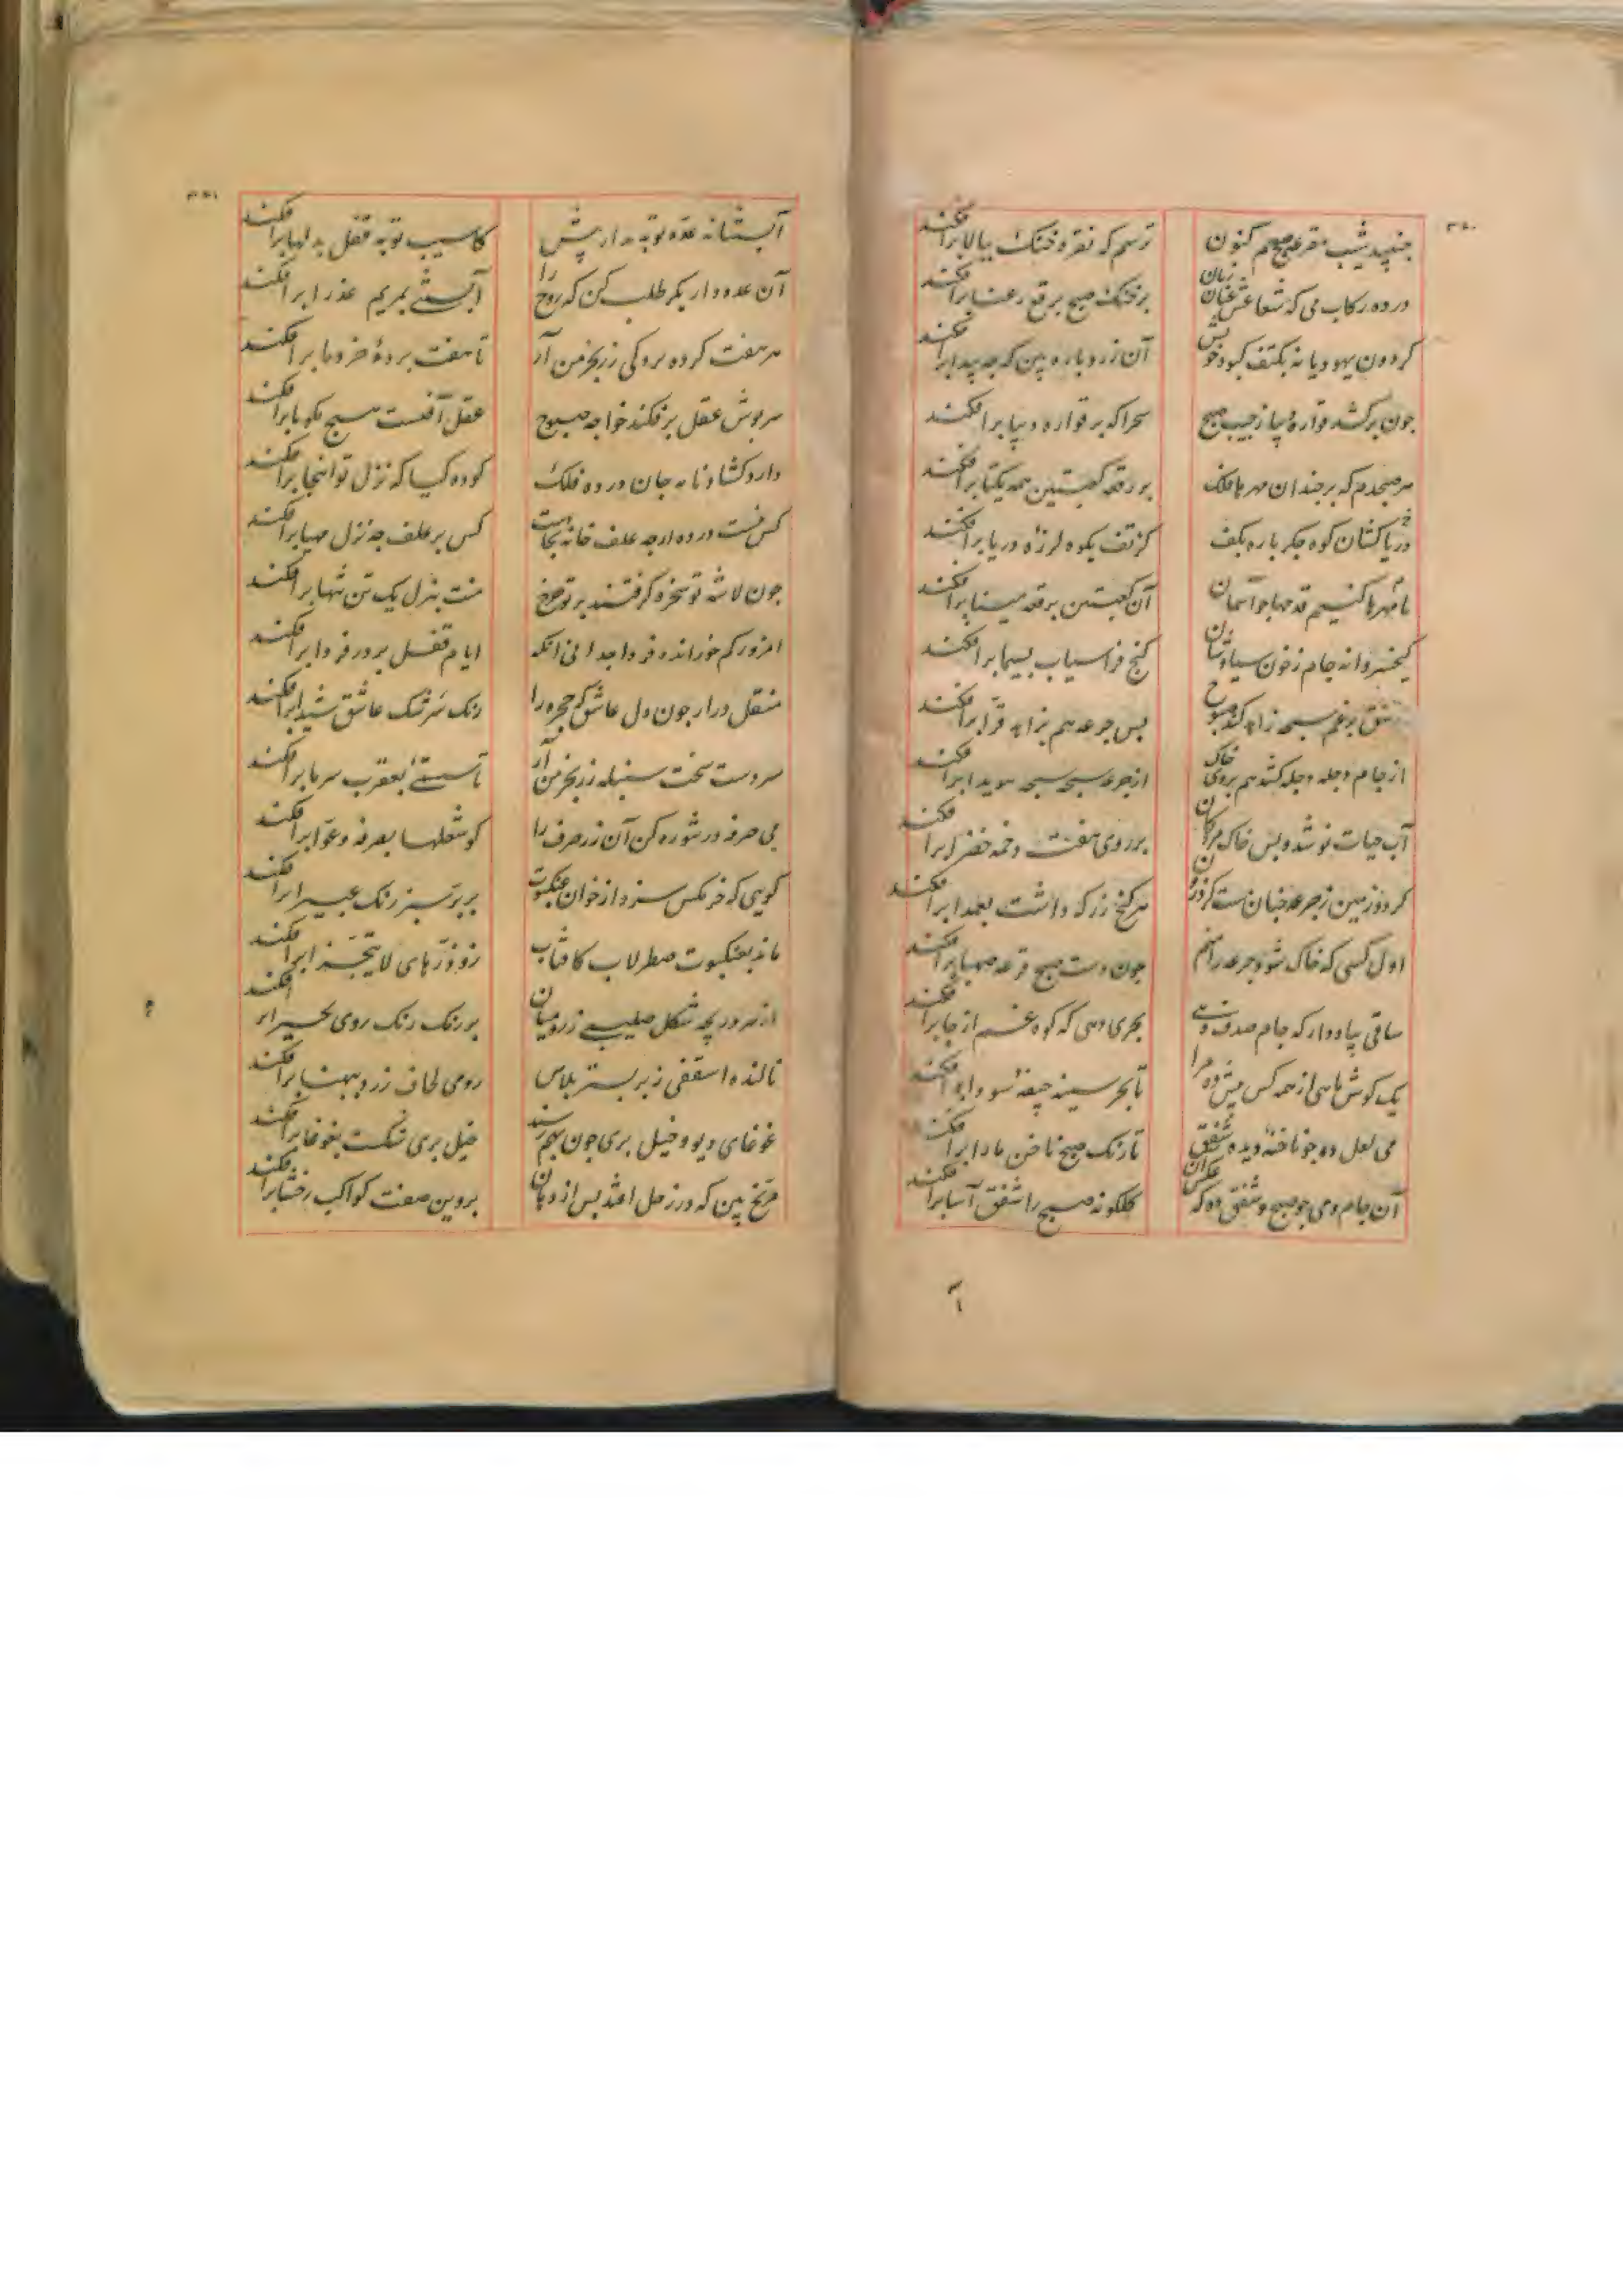 ۳۸۰
جنبید شیب مقرعه صبحدم کنون
ترسم که نقره خنک ببالا برافکند
در ده رکاب می که شعاعش عنان زنان
بر خنک صبح برقع رعنا برافکند
کردون یهودیانه بکتف کبود خویش
آن زرد پاره بین که چه پیدا برافکند
جون برکشد قواره دیبا ز جیب صبح
سحرا که بر قواره دیبا برافکند
هر صبحدم که برجند آن مهرها فلک
بر رقعه کعبتین همه یکتا برافکند
دریاکشان کوه جکر باده بکف
کز تف بکوه لرزه دریا برافکند
تا مهرها کنیم قدحها جو آسمان
آن کعبتین برقعه مینا برافکند
کیخسروانه جام ز خون سیاوشان
کنج فراسیاب بسیما برافکند
عاشق برغم سبحه زاهد کند صبوح
بس جرعه هم بزاهد قرا برافکند
از جام دجله دجله کشد هم بروی خاک
از جرعه سبحه سبحه هویدا برافکند
آب حیات نوشد و بس خاک مردکان
بر روی هفت دخمه خضرا برافکند
کردد زمین ز جرعه جنان مست کز درون
هر کنج زر که داشت بعمدا برافکند
اول کسی که خاک شود جرعه را منم
جون دست صبح قرعه صهبا برافکند
ساقی بیاد دار که جام صدف دهی
بحری دهی که کوه غم از جا برافکند
یک کوش ماهی از همه کس بیش ده مرا
تا بحر سینه جیفه سودا برافکند
می لعل ده جو ناخنه دیده شفق
تا رنک صبح ناخن ما را برافکند
آن جام و می جو صبح و شفق ده که عکس آن
کلکونه صبح را شفق آسا برافکند
۳۸۱
آبستنانه عده توبه مدار بیش
کاسیب توبه قفل بدلها برافکند
آن عده دار بکر طلب کن که روح را
آبستنی بمریم عذرا برافکند
هر هفت کرده بردکی رز بخرمن آر
تا هفت برده خرد ما برافکند
سربوش عقل برفکند خواجه صبوح
عقل آفتست هیچ مکو تا برافکند
دارد کشادنامه جان در ده فلک
کو ده کیا که نزل تو اینجا برافکند
کس نیست در ده ارچه علف خانه بجاست
کس بر علف چه نزل مهیا برافکند
جون لاشه تو سخره کرفتند بر تو جرخ
منت بنزل یک تن تنها برافکند
امروز کم خور انده فردا چه دانی آنکه
ایام قفل بر در فردا برافکند
منقل درآر جون دل عاشق که حجره را
رنک سرشک عاشق شیدا برافکند
سردست سخت سنبله رز بخرمن آر
تا سستی بعقرب سرما برافکند
بی صرفه در تنوره کن آن زر صرف را
کو شعلها بصرفه و عوا برافکند
کویی که خرمکس سزد از خوان عنکبوت
بر بر سبز رنک عبیرا برافکند
ماند بعنکبوت صطرلاب کافتاب
زو ذرهای لا یتجزا برافکند
از هر دریچه شکل صلیبی ز رومیان
بر زنک رنک رومی بحیرا برافکند
نالنده اسقفی ز بر بستر بلاس
رومی لحاف زرد ببهنا برافکند
غوغای دیو و خیل بری جون بهم رسند
خیل بری شکست بغوغا برافکند
مریخ بین که در زحل افتد بس از دهان
بروین صفت کواکب رخشا برافکند